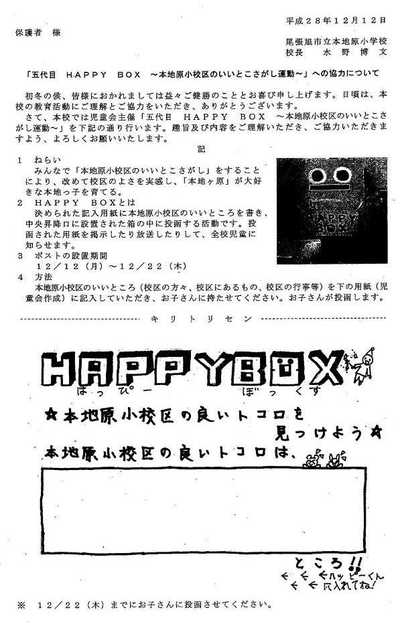 平成２８年１２月１２日
保護者　様
尾張旭市立本地原小学校
校長　水　野　博　文
「五代目　ＨＡＰＰＹ　ＢＯＸ　～本地原小校区のいいとこさがし運動～」への協力について
初冬の候、皆様におかれましては益々ご健勝のこととお喜び申し上げます。日頃は、本
校の教育活動にご理解とご協力をいただき、ありがとうございます。
さて、本校では児童会主催「五代目　ＨＡＰＰＹ　ＢＯＸ　～本地原小校区のいいとこさ
がし運動～」を下記の通り行います。趣旨及び内容をご理解いただき、ご協力いただきま
すよう、よろしくお願いいたします。
記
１　ねらい
みんなで「本地原小校区のいいとこさがし」をすること
により、改めて校区のよさを実感し、「本地ヶ原」が大好
きな本地っ子を育てる。
２　ＨＡＰＰＹ　ＢＯＸとは
決められた記入用紙に本地原小校区のいいところを書き、
中央昇降口に設置された箱の中に投函する活動です。投
函された用紙を掲示したり放送したりして、全校児童に
知らせます。
３　ポストの設置期間
１２／１２（月）～１２／２２（木）
４　方法
本地原小校区のいいところ（校区の方々、校区にあるもの、校区の行事等）を下の用紙（児
童会作成）に記入していただき、お子さんに持たせてください。お子さんが投函します。
キリトリセン
HAPPYBOX
はっぴー　ぼっくす
☆本地原小校区の良いトコロを
見つけよう☆
本地原小校区の良いトコロは、
ところ!!
←←←ハッピーくん
←←穴入れてね!
※　１２／２２（木）までにお子さんに投函させてください。